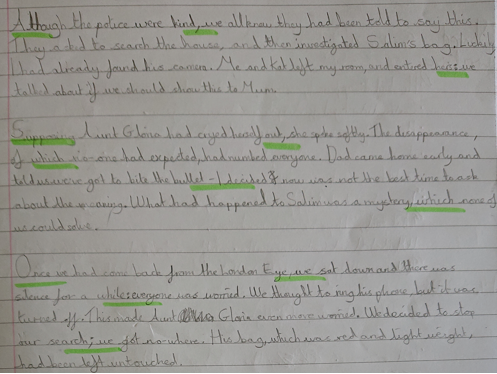 Although the police were kind, we all knew they had been told to say this.
They asked to search the house, and then investigated Salim's bag. Luckily,
I had already found his camera. Me and Kat left my room, and entired hers: we
talked about if we should show this to Mum
Supposing Aunt Gloria had cryed herself out, she spoke softly. The disappearance,
of which no-one had expected, had numbed everyone. Dad came home early and
told us we've got to bite the bullet - I decided now was not the best time to ask
about the meaning. What had happened to Salim was a mystery, which none of
us could solve.
Once we had come back from the London Eye, we sat down and there was
silence for a while: everyone was worried. We thought to ring his phone but it was
turned off. This made Aunt Gloia even more worried. We decided to stop
our search; we got nowhere. His bag, which was red and light weight,
had been left untouched.